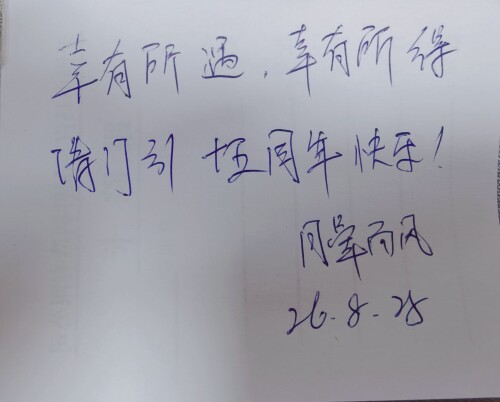 幸有所遇，幸有所得
门引 十五周年快乐！
月晕而风
26.8.28